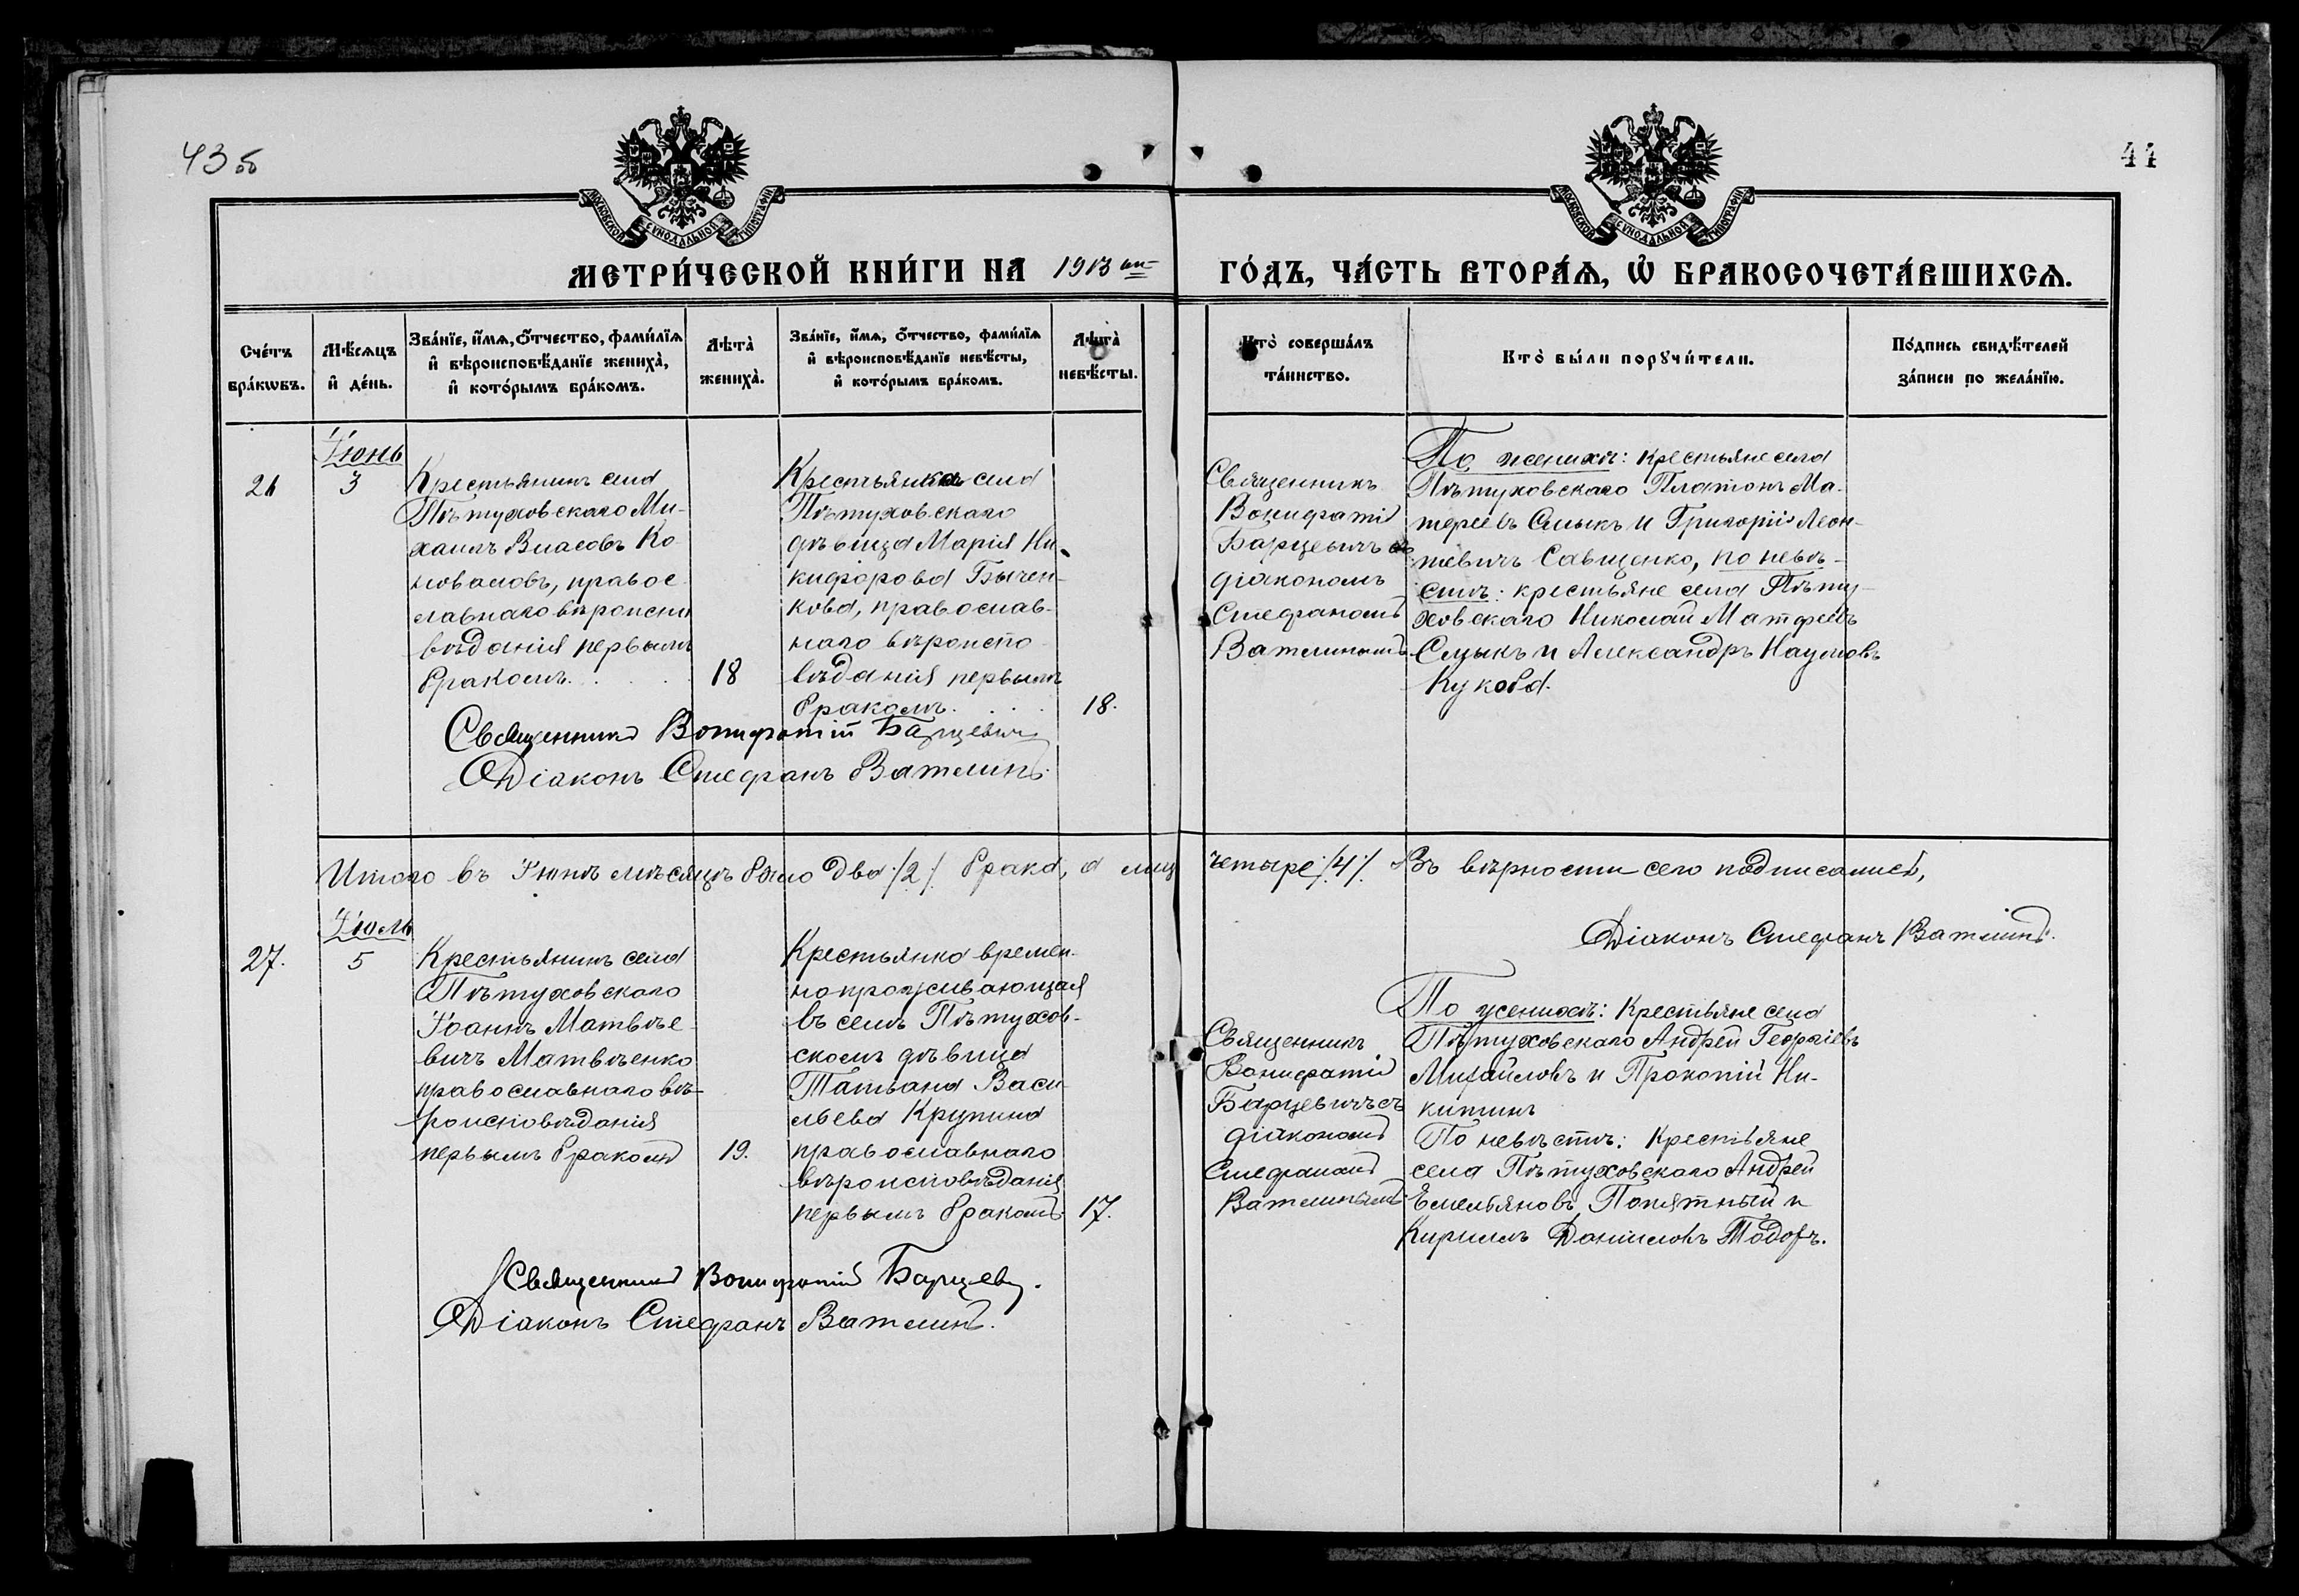 43 об
44
МОСКОВСКОЙ СѴНОДАЛЬНОЙ ТИПОГРАФІИ
МОСКОВСКОЙ СѴНОДАЛЬНОЙ ТИПОГРАФІИ
МЕТРИ́ЧЕСКОЙ КНИ́ГИ НА 1913 ый
ГО́ДЪ, ЧА́СТЬ ВТОРА́Ѧ, Ѡ҆ БРАКОСОЧЕТА́ВШИХСѦ.
Сче́тъ
бра́кѡвъ.
Мѣ́сѧцъ
и҆ де́нь.
Зва́нїе, и҆́мѧ, ѻ҆́тчество, фами́лїѧ
и҆ вѣроисповѣ́данїе жениха̀,
и҆ кото́рымъ бра́комъ.
Лѣта̀
жениха̀.
Зва́нїе, и҆́мѧ, ѻ҆́тчество, фами́лїѧ
и҆ вѣроисповѣ́данїе невѣ́сты,
и҆ кото́рымъ бра́комъ.
Лѣта̀
невѣ́сты.
Кто̀ соверша́лъ
та́инство.
Кто̀ бы́ли порꙋчи́тели.
По́дпись свидѣ́телей
за́писи по жела́нїю.
Іюнь
26
3
Крестьянинъ села
Пѣтуховскаго Ми-
хаилъ Власовъ Ко
новаловъ, правос
лавнаго вѣроиспо
вѣданія первымъ
бракомъ.
18
Крестьянка села
Пѣтуховскаго
дѣвица Марія Ни-
кифорова Бычен-
кова, православ-
наго вѣроиспо
вѣданія первымъ
бракомъ.
18.
Священникъ
Вонифатій
Барцевичъ съ
діакономъ
Стефаномъ
Ватлинымъ.
По женихѣ: крестьяне села
Пѣтуховскаго Платонъ Ма-
тфеевъ Смыкъ и Григорій Леон-
тевичъ Савщенко, по невѣ-
стѣ: крестьяне села Пѣту-
ховскаго Николай Матфеевъ
Смыкъ и Александръ Наумовъ
Кукоба.
Священникъ Вонифатій Барцевичъ
Діаконъ Стефанъ Ватлинъ.
Итого въ Іюнѣ мѣсяцѣ было два /2/ брака, а лиц четыре /4/. Въ вѣрности сего подписались,
Діаконъ Стефанъ Ватлинъ.
Іюль
27.
5
Крестьянинъ села
Пѣтуховскаго
Іоаннъ Матвѣе-
вичъ Матвѣенко
православнаго вѣ-
роисповѣданія
первымъ бракомъ
19.
Крестьянка времен-
но проживающая
въ селѣ Пѣтухов-
скомъ дѣвица
Татьяна Васи-
льева Крупина
православнаго
вѣроисповѣданія
первымъ бракомъ.
17.
Священникъ
Вонифатій
Барцевичъ съ
діакономъ
Стефаномъ
Ватлинымъ
По женихѣ: Крестьяне села
Пѣтуховскаго Андрей Георгіевъ
Михайловъ и Прокопій Ни-
китинъ
По невѣстѣ: Крестьяне
села Пѣтуховскаго Андрей
Емельяновъ Попятный и
Кириллъ Даніиловъ Тодоръ.
Священникъ Вонифатій Барцевич.
Діаконъ Стефанъ Ватлинъ.